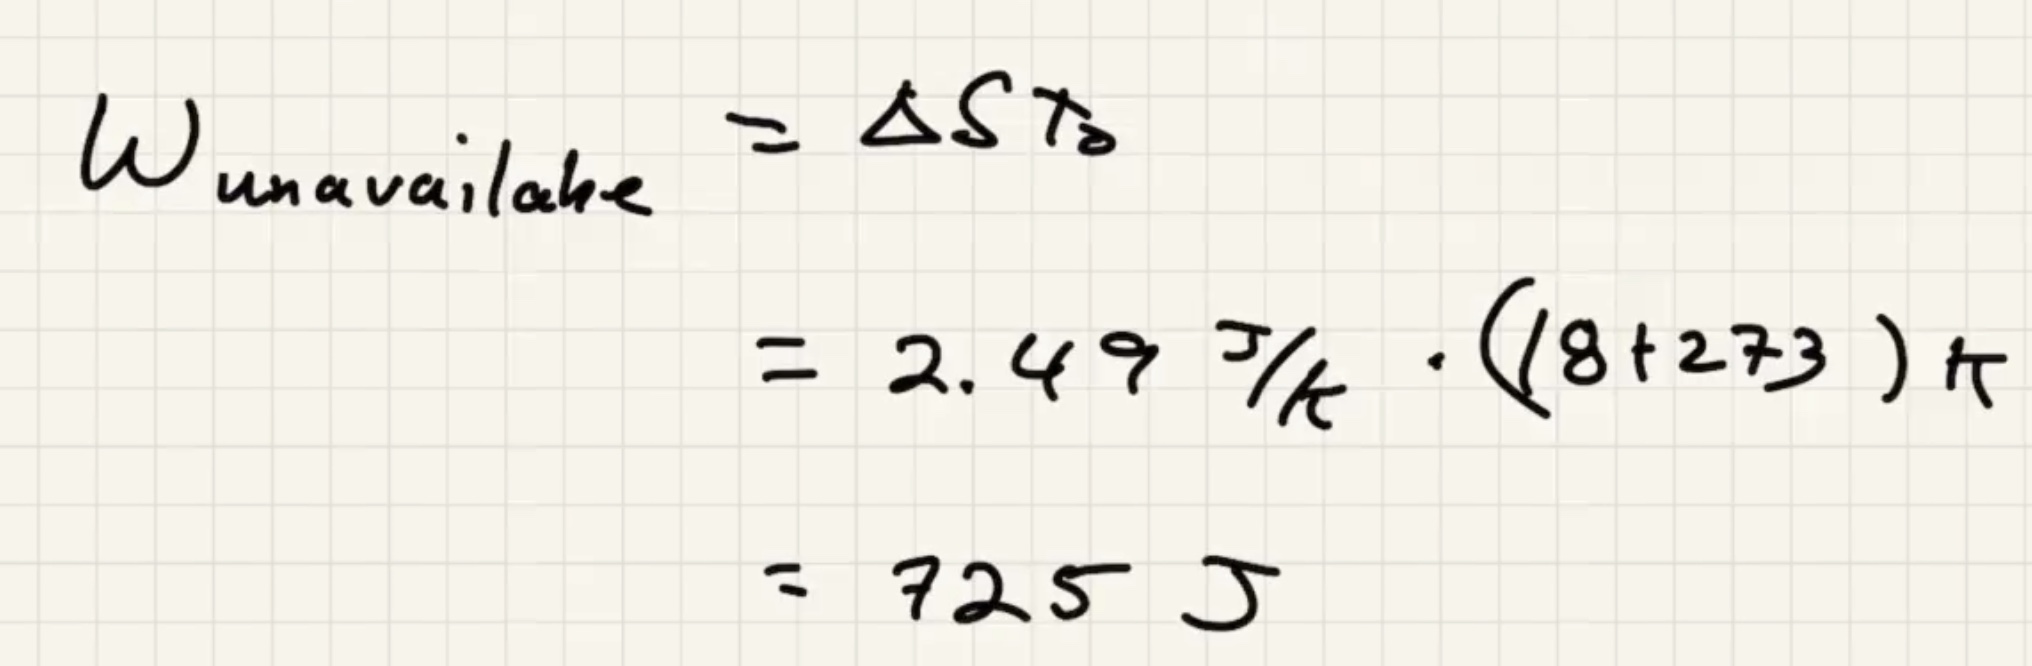 W unavailable = ΔS T₀
= 2.49 J/K · (18+273) K
= 725 J